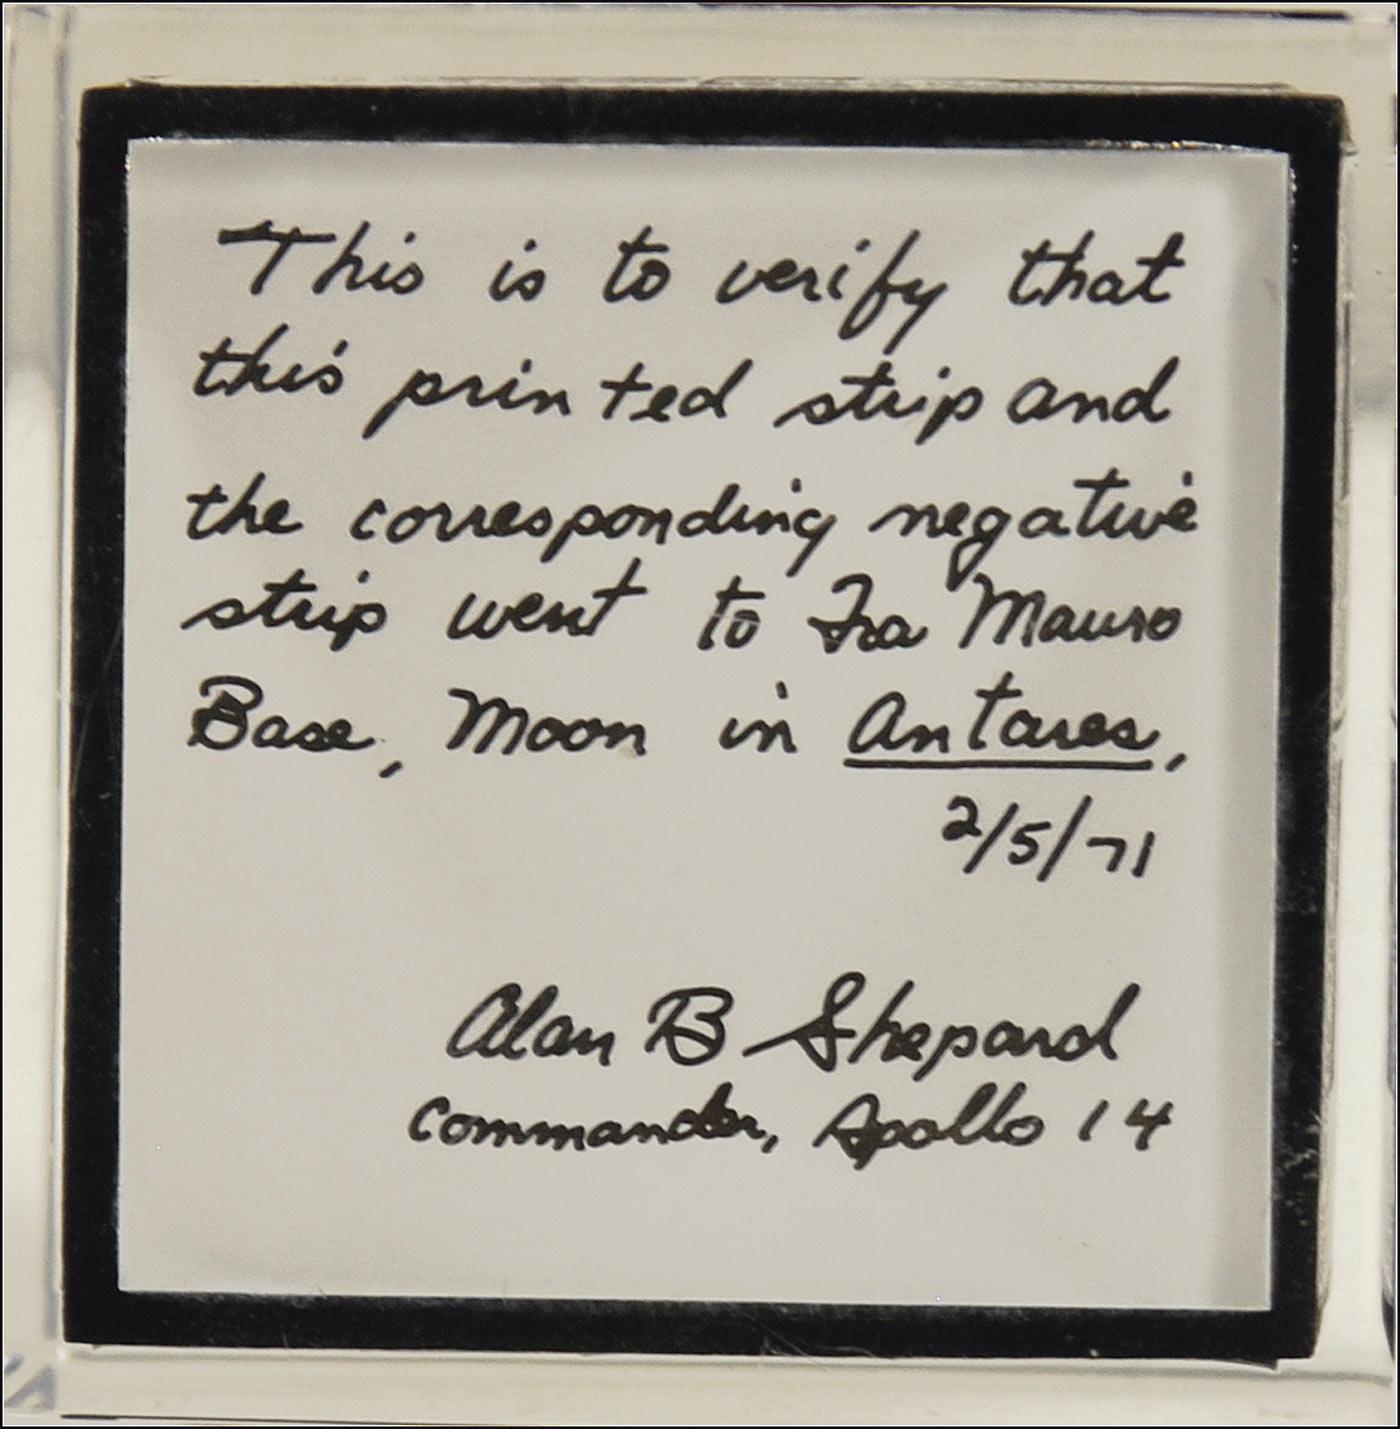 This is to verify that
this printed strip and
the corresponding negative
strip went to Fra Mauro
Base, Moon in Antares,
2/5/71
Alan B Shepard
Commander, Apollo 14